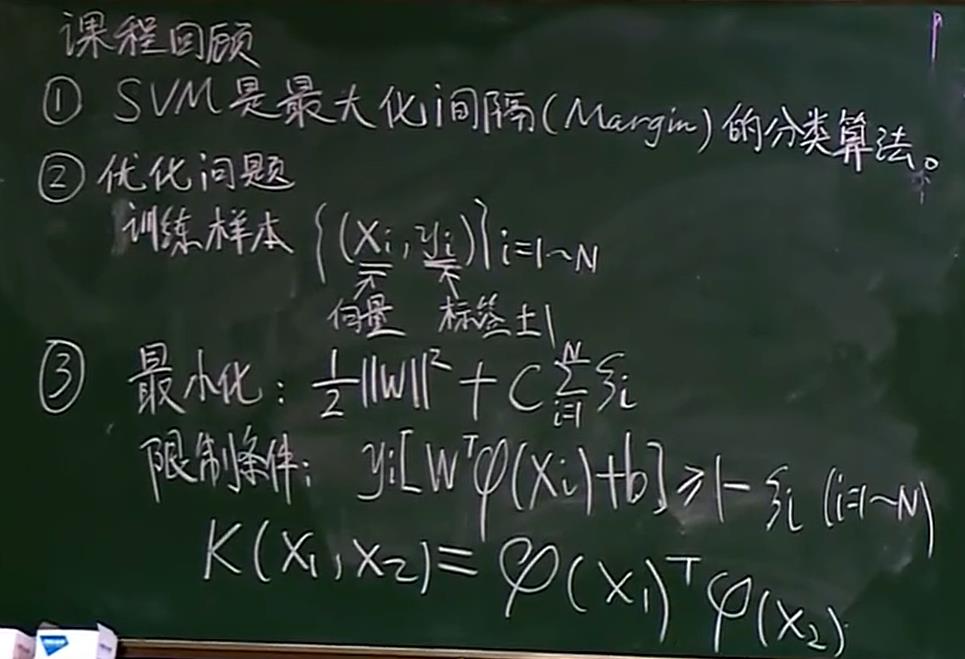 课程回顾
① SVM是最大化间隔(Margin)的分类算法。
② 优化问题
训练样本 {(Xi,yi)}i=1~N
向量 标签±1
③ 最小化: 1/2||W||² + C∑_{i=1}^{N} ξi
限制条件: yi[WᵀΦ(Xi)+b]≥1-ξi (i=1~N)
K(X₁,X₂)=φ(X₁)ᵀφ(X₂)